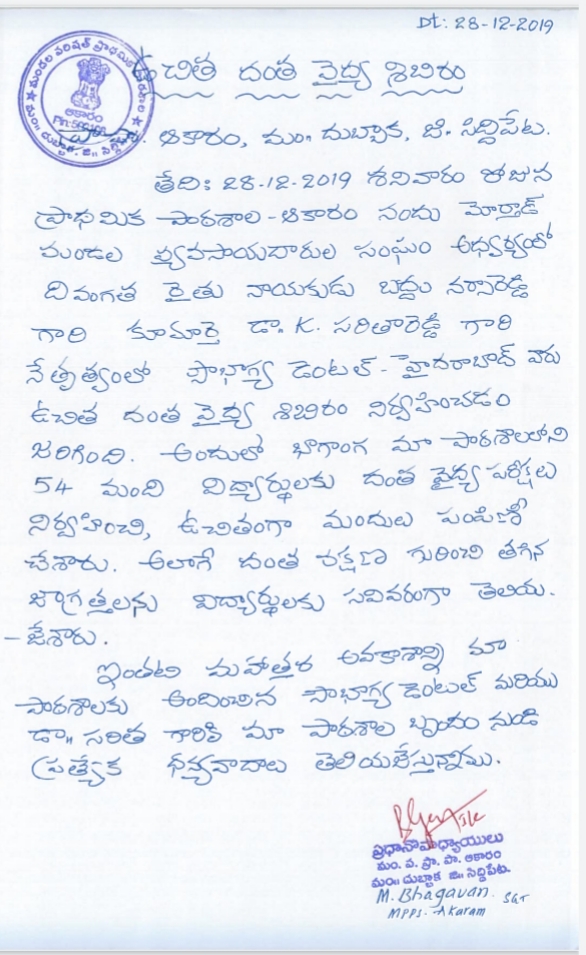 Dt: 28-12-2019
ఉచిత దంత వైద్య శిబిరం
ఆకారం, మం॥ దుబ్బాక, జి. సిద్దిపేట.
తేది: 28-12-2019 శనివారం రోజున
ప్రాథమిక పాఠశాల - ఆకారం నందు మోర్తాడ్
మండల వ్యవసాయదారుల సంఘం ఆధ్వర్యంలో
దివంగత రైతు నాయకుడు బద్దం నర్సారెడ్డి
గారి కూమార్తె డా. K. సరితారెడ్డి గారి
నేతృత్వంలో సౌభాగ్య డెంటల్ - హైదరాబాద్ వారు
ఉచిత దంత వైద్య శిబిరం నిర్వహించడం
జరిగింది. అందులో భాగాంగ మా పాఠశాలలోని
54 మంది విద్యార్థులకు దంత వైద్య పరీక్షలు
నిర్వహించి, ఉచితంగా మందులు పంపిణీ
చేశారు. అలాగే దంత రక్షణ గురించి తగిన
జాగ్రత్తలను విద్యార్థులకు సవివరంగా తెలియ.
- జేశారు.
ఇంతటి మహాత్తర అవకాశాన్ని మా
పాఠశాలకు అందించిన సౌభాగ్య డెంటల్ మరియు
డా॥ సరిత గారికి మా పాఠశాల బృందం నుండి
ప్రత్యేక ధన్యవాదాలు తెలియజేస్తున్నాము.
ప్రధానోపాధ్యాయులు
మం. ప. ప్రా. పా. ఆకారం
మం॥ దుబ్బాక జి॥ సిద్దిపేట.
M. Bhagavan. SGT
MPPS. Akaram